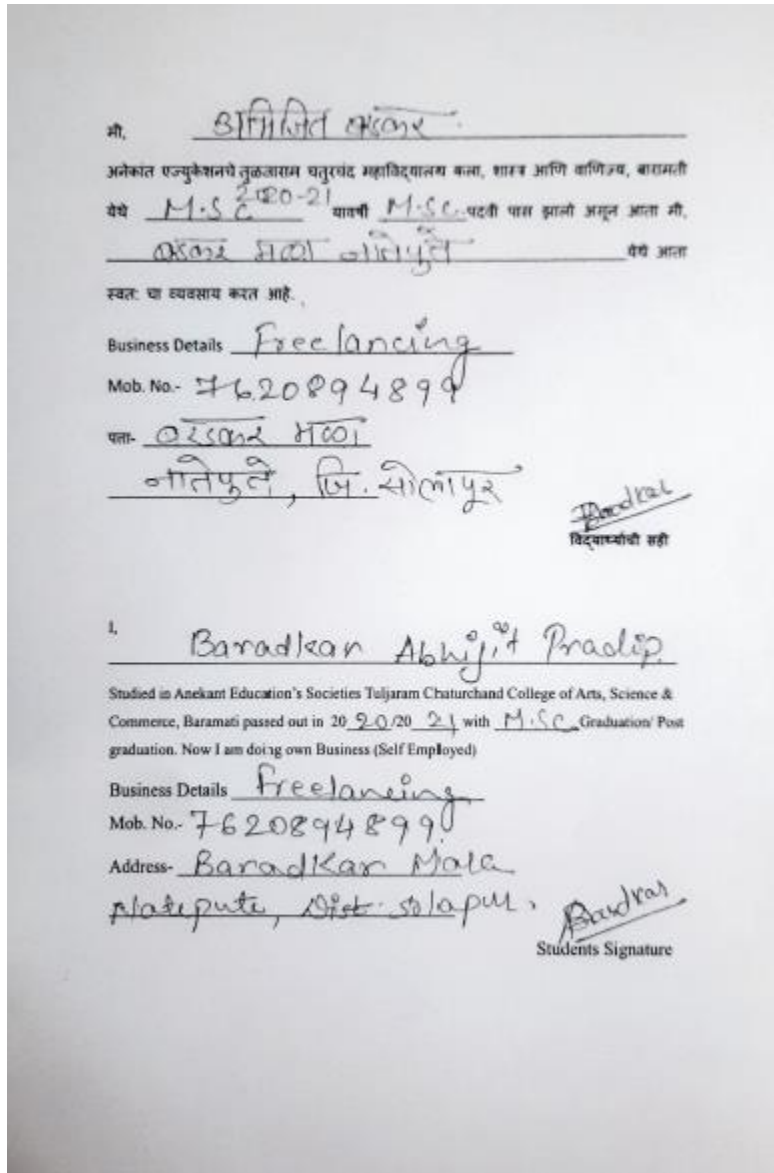 मी, अभिजित बरडकर
अनेकांत एज्युकेशनचे तुळजाराम चतुरचंद महाविद्यालय कला, शास्त्र आणि वाणिज्य, बारामती
येथे M.Sc 2020-21 यावर्षी M.Sc. पदवी पास झालो असून आता मी,
बरडकर मळा नातेपुते येथे आता
स्वत: चा व्यवसाय करत आहे.
Business Details Freelancing
Mob. No.- 7620894899
पत्ता- बरडकर मळा
नातेपुते, जि. सोलापूर
Baradkar
विद्यार्थ्याची सही
I, Baradkar Abhijit Pradip.
Studied in Anekant Education's Societies Tuljaram Chaturchand College of Arts, Science &
Commerce, Baramati passed out in 20 20/20 21 with M.Sc Graduation/ Post
graduation. Now I am doing own Business (Self Employed)
Business Details Freelancing
Mob. No.- 7620894899
Address- Baradkar Mala
Natepute, Dist. Solapur.
Baradkar
Students Signature